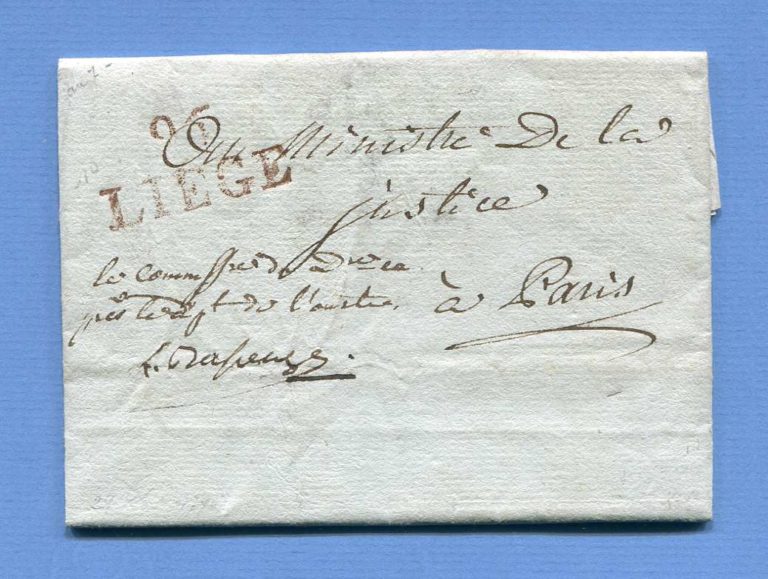 an 7
96
LIEGE
Au Ministre De la
justice
à Paris
le Commre du Dre ex
près le dépt de l'ourthe